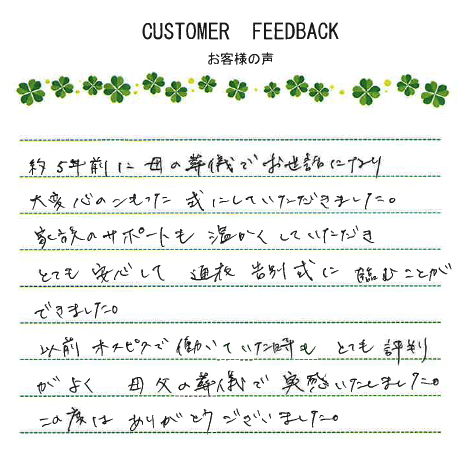 CUSTOMER FEEDBACK
お客様の声
約5年前に母の葬儀でお世話になり
大変心のこもった式にしていただきました。
家族のサポートも温かくしていただき
とても安心して通夜告別式に臨むことが
できました。
以前ホスピスで働いていた時もとても評判
がよく母父の葬儀で実感いたしました。
この度はありがとうございました。